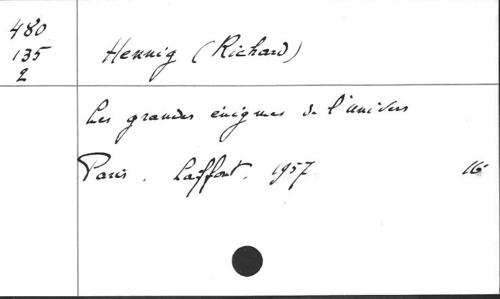 480
135
2
Hennig (Richard)
Les grandes énigmes de l'univers
Paris. Laffont. 1957. 16°